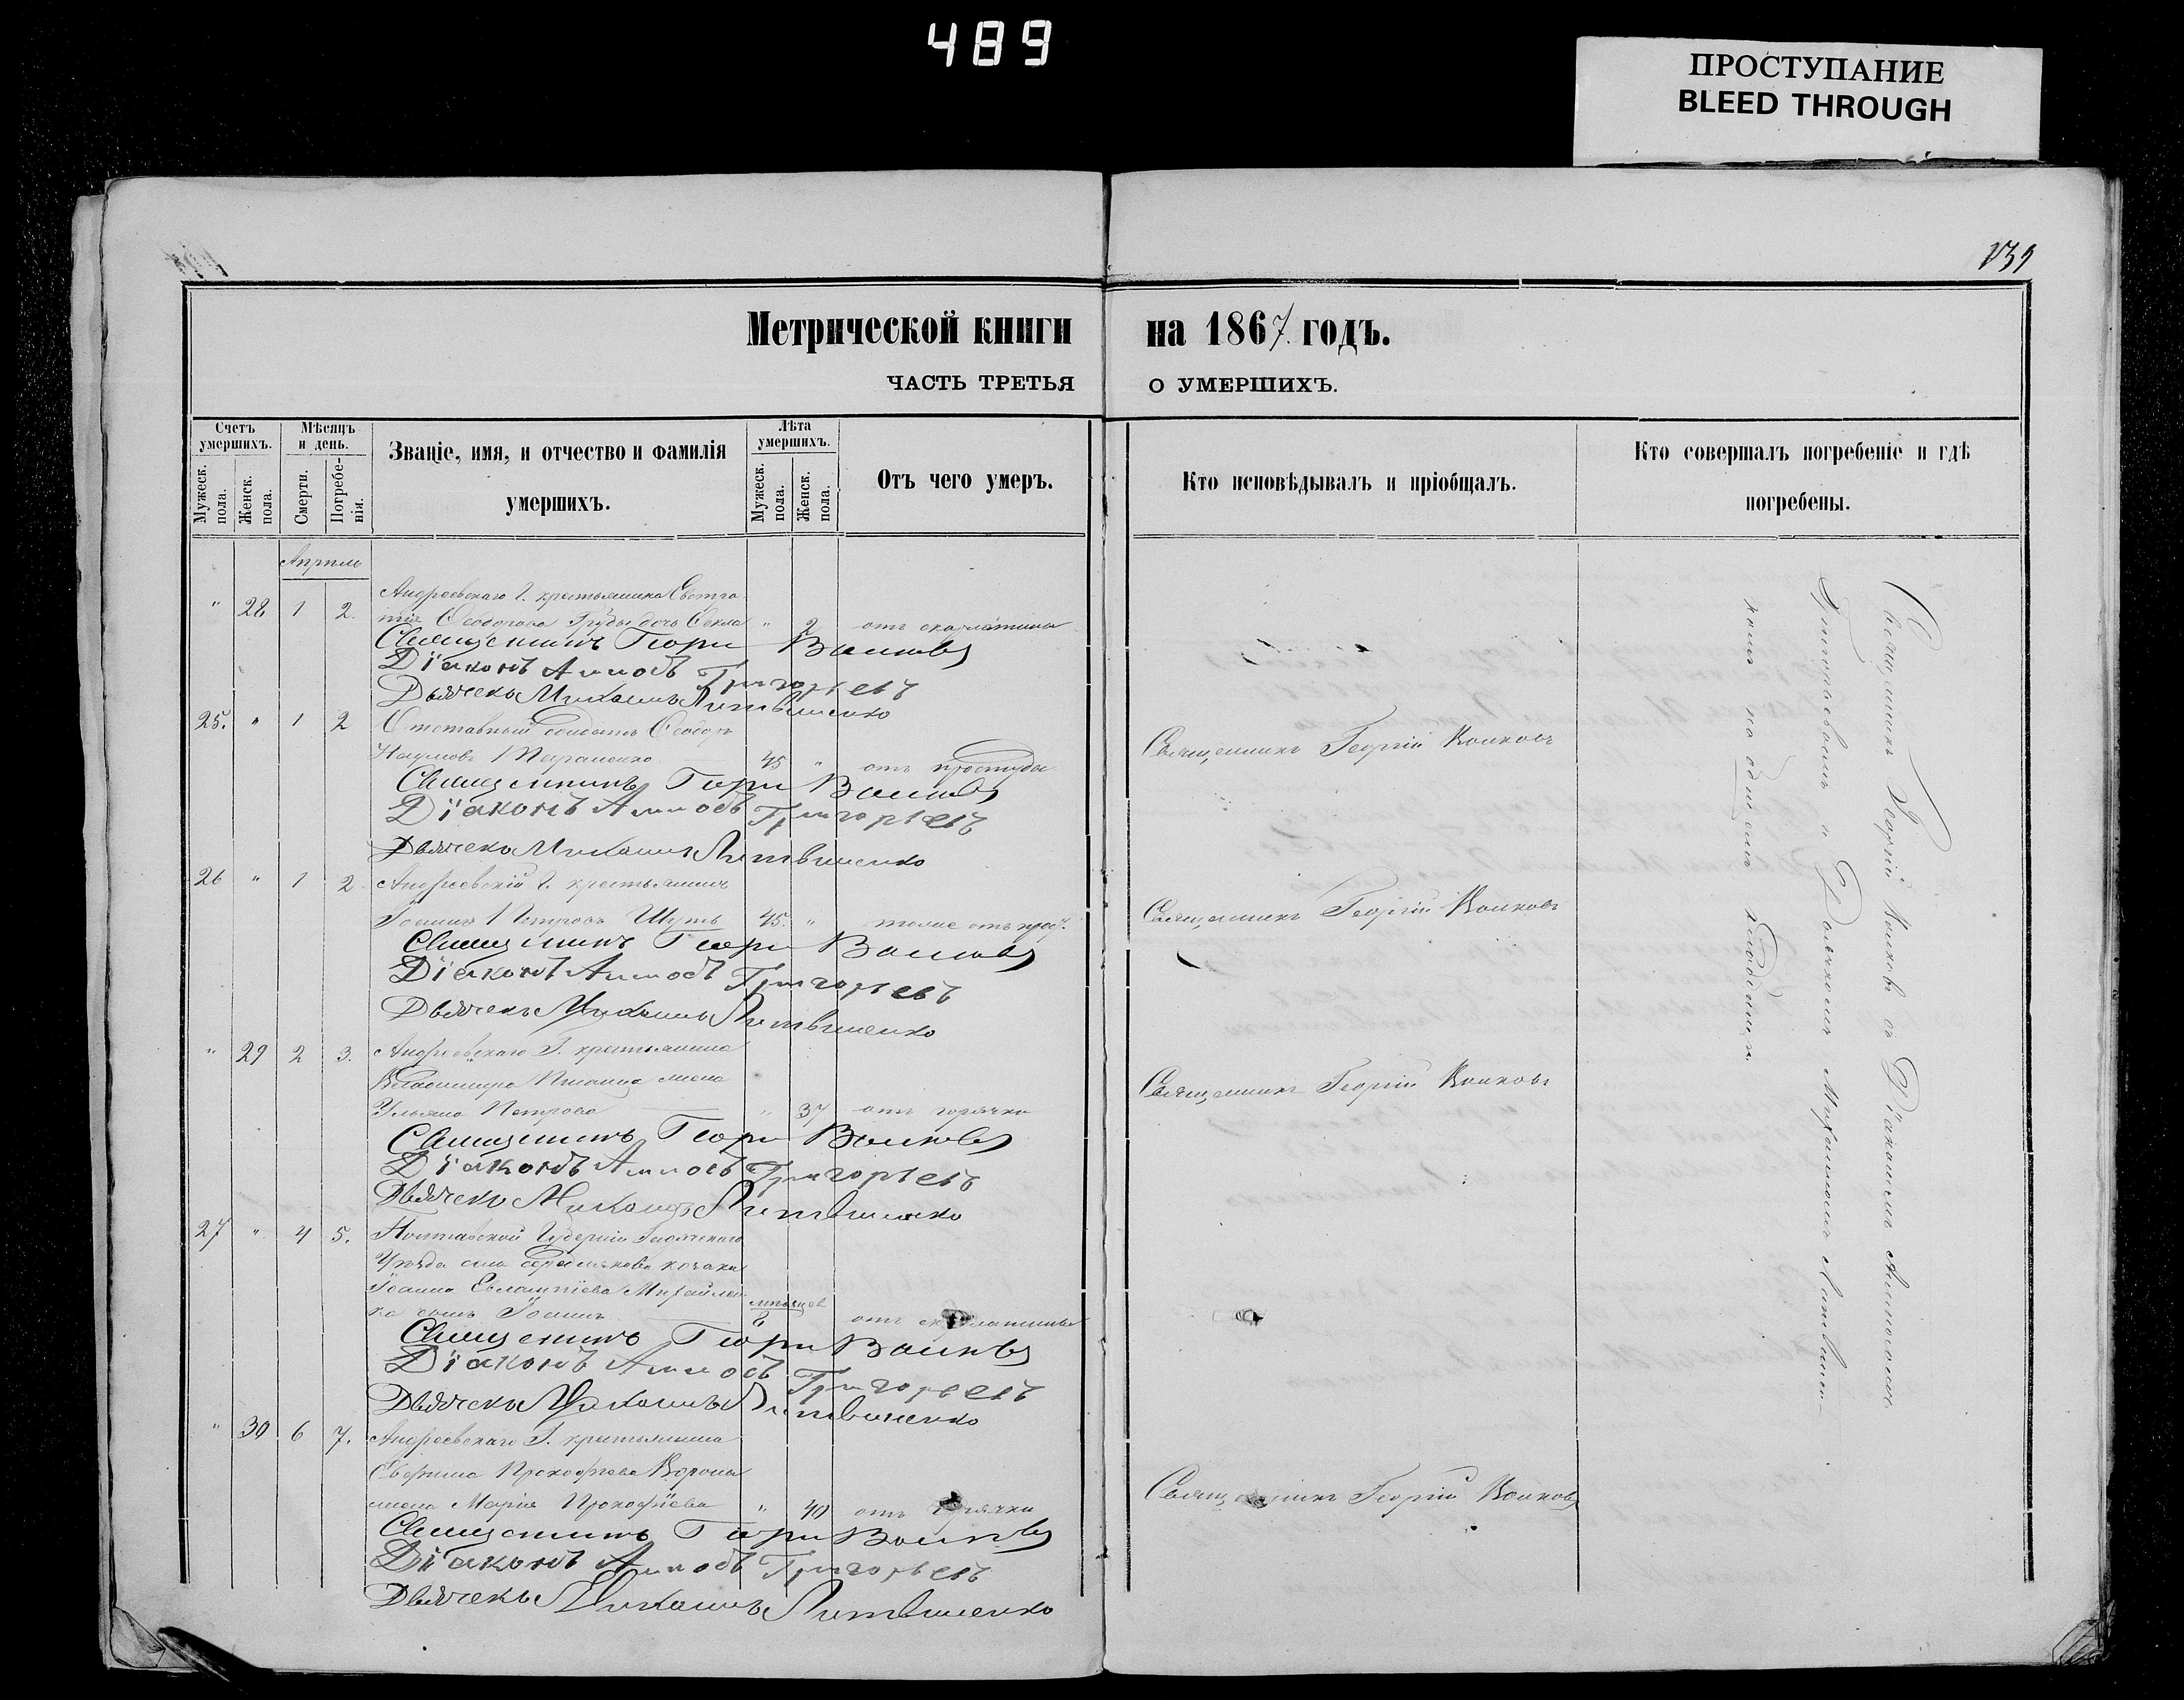 489
ПРОСТУПАНИЕ
BLEED THROUGH
139
Метрической книги на 1867. годъ.
ЧАСТЬ ТРЕТЬЯ О УМЕРШИХЪ.
Счетъ умершихъ.
Мужеск. пола.
Женск. пола.
Мѣсяцъ и день.
Смерти.
Погребе-
нія.
Званіе, имя, и отчество и фамилія
умершихъ.
Лѣта умершихъ.
Мужеск. пола.
Женск. пола.
Отъ чего умеръ.
Кто исповѣдывалъ и пріобщалъ.
Кто совершалъ погребеніе и гдѣ
погребены.
Апрѣль
" 28 1 2. Андреевскаго Г. крестьянина Евстра
тія Ѳеодорова дочь Ѳекла " 2 отъ скарлатины
Священникъ Георгій Волковъ
Діаконъ Григорьевъ
Дьячекъ Михаилъ Литвиненко
25. " 1 2 Отставный солдатъ Ѳеодоръ
Наумовъ 45 " отъ простуды
Священникъ Георгій Волковъ
Священникъ Георгій Волковъ
Діаконъ Григорьевъ
Дьячекъ Михаилъ Литвиненко
26 " 1 2 Андреевскій Г. крестьянинъ
Іоаннъ Петровъ Шуть 45. " тоже отъ прос.
Священникъ Георгій Волковъ
Священникъ Георгій Волковъ
Діаконъ Григорьевъ
Дьячекъ Михаилъ Литвиненко
" 29 2 3. Андреевскаго Г. крестьянина
Владиміра жена
Ульяна Петрова " 37 отъ горячки
Священникъ Георгій Волковъ
Священникъ Георгій Волковъ
Діаконъ Григорьевъ
Дьячекъ Михаилъ Литвиненко
27 " 4 5. Полтавской Губерніи
Уѣзда села козака
Іоанна Михайлен
ка сынъ Іоаннъ мѣсяцов 6 отъ скарлатины
Священникъ Георгій Волковъ
Діаконъ Григорьевъ
Дьячекъ Михаилъ Литвиненко
" 30 6 7. Андреевскаго Г. крестьянина
Прокофьева
жена Марія Прокофіева " 40 отъ горячки
Священникъ Георгій Волковъ
Священникъ Георгій Волковъ
Діаконъ Григорьевъ
Дьячекъ Михаилъ Литвиненко
Священникъ Георгій Волковъ съ Діакономъ
Григорьевымъ и Дьячкомъ Михаиломъ Литвинен-
комъ на общемъ кладбищѣ.